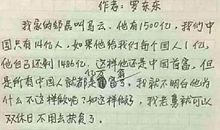 作者：罗东东
我家的邻居叫马云，他有1500亿，我们中
国人有14亿人，如果他给我们每个国人1亿，
他自己还剩1486亿，这样他还是中国首富，但
是所有中国人就都是亿万富翁了，我就不明白他为
什么不这样做呢？如这样做了，我老妻就可以
双休日不用去校了。